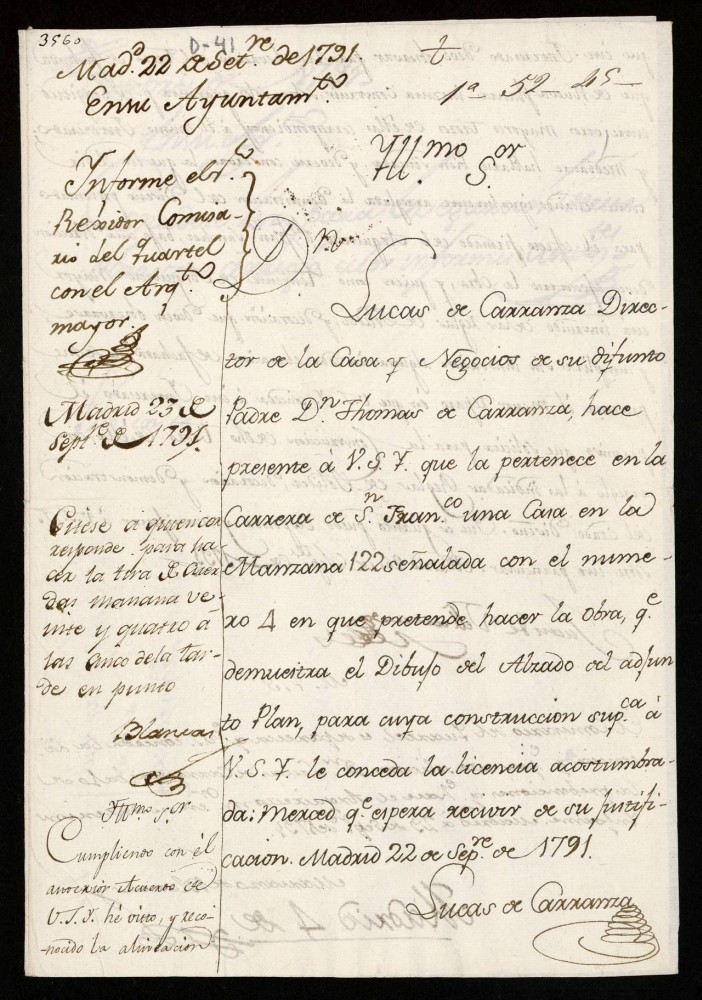 3560
D-41
Mad.d 22 de Set.re de 1791.
En su Ayuntam.to
t
1a 52 45
Informe el s.r
Rexidor Comisa-
rio del Quartel
con el Arq.to
mayor.
Madrid 23 de
Sept.e de 1791.
Citese a quien cor
responde para ha-
cer la tira de Cuer
das mañana ve-
inte y quatro á
las cinco de la tar-
de en punto
Blancas
Ill.mo S.or
Cumpliendo con el
anterior Acuerdo de
V.S.Y. hé visto, y reco-
nocido la alineacion
Yll.mo S.or
Dn
Lucas de Carranza Direc-
tor de la Casa y Negocios de su difunto
Padre D.n Thomas de Carranza, hace
presente á V.S.Y. que la pertenece en la
Carrera de S.n Fran.co una Casa en la
Manzana 122 señalada con el nume-
ro 4 en que pretende hacer la Obra, q.e
demuestra el Dibuso del Alzado del adjun
to Plan, para cuya construccion sup.ca á
V.S.Y. le conceda la licencia acostumbra-
da: Merced q.e espera recivir de su justifi-
cacion. Madrid 22 de Sep.re de 1791.
Lucas de Carranza